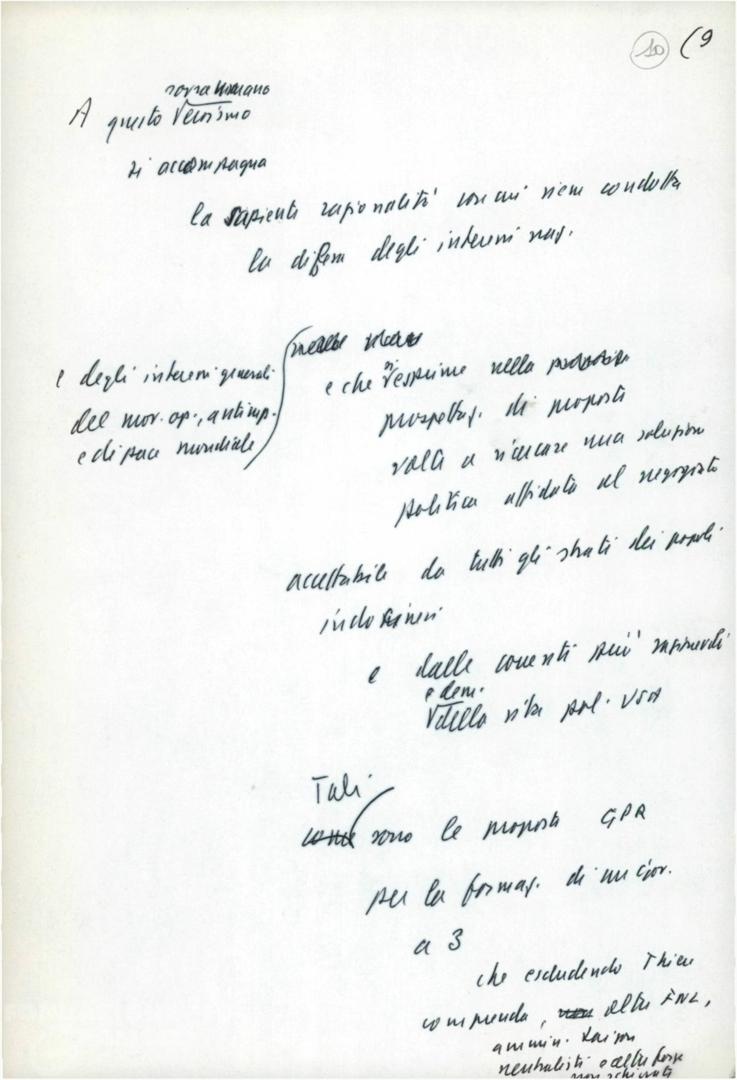 10 (9
sovraumano
A questo eroismo
si accompagna
la sapiente razionalità con cui viene condotta
la difesa degli interessi naz.
e degli interessi generali
del mov. op., antimp.
e di pace mondiale
e che si esprime nella
prospettaz. di proposte
volte a ricercare una soluzione
politica affidata al negoziato
accettabile da tutti gli strati dei popoli
indocinesi
e dalle correnti più ragionevoli
e dem.
della vita pol. USA
Tali
come sono le proposte GPR
per la formaz. di un gov.
a 3
che escludendo Thieu
comprenda, oltre FNL,
ammin. Saigon
neutralisti e altre forze
non schierate